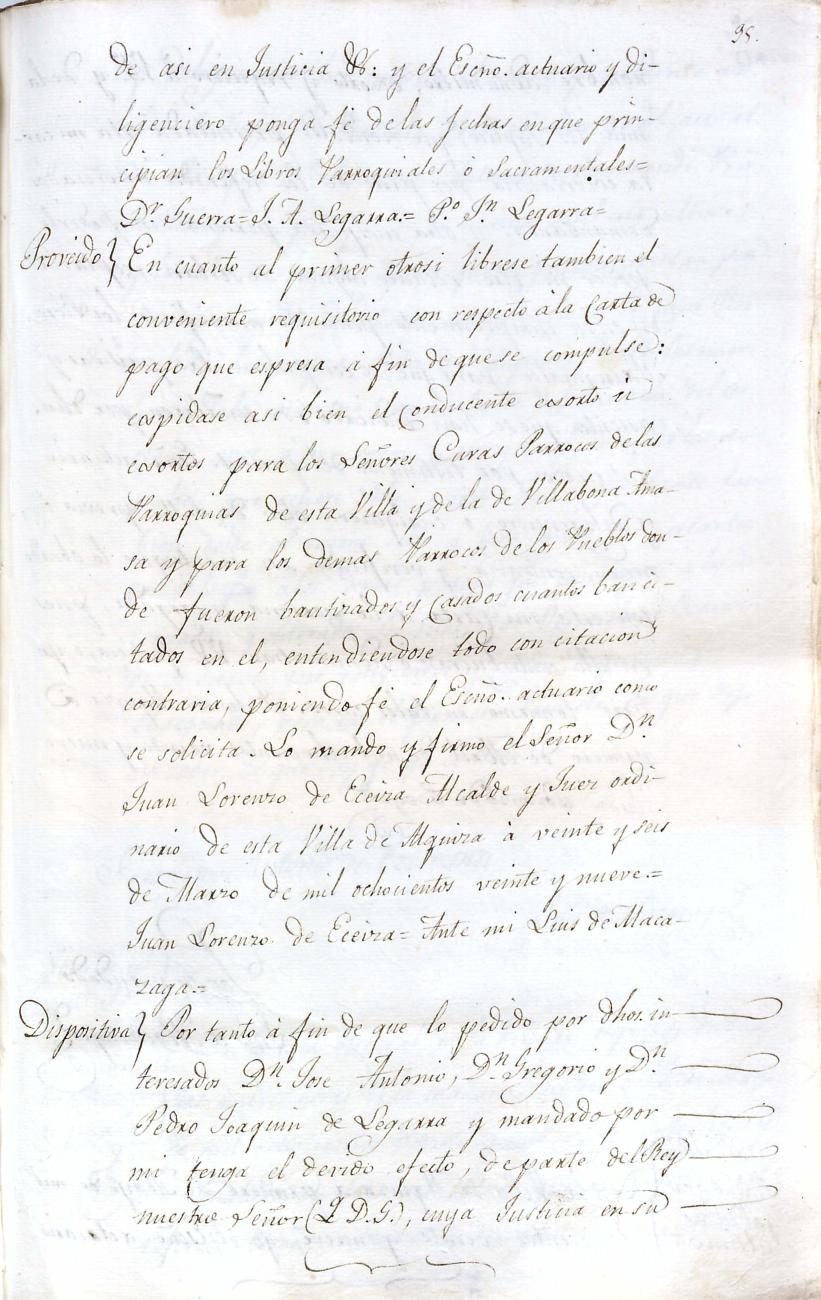 95.
de asi en Justicia &&: y el Escño. actuario y di-
ligenciero ponga fé de las fechas en que prin-
cipian los Libros Parroquiales ó Sacramentales=
Dr. Guerra= J. A. Legarra.= P.o Jn Legarra=
Proveido} En cuanto al primer otrosi librese tambien el
conveniente requisitorio con respecto á la Carta de
pago que espresa á fin de que se compulse:
espidase asi bien el Conducente esorto ú
esortos para los Señores Curas Parrocos de las
Parroquias de esta Villa y de la de Villabona Ama-
sa y para los demas Parrocos de los Pueblos don-
de fueron bautizados y Casados cuantos ban ci-
tados en el, entendiendose todo con citacion
contraria, poniendo fé el Escño. actuario como
se solicita. Lo mando y firmo el Señor Dn
Juan Lorenzo de Eceiza Alcalde y Juez ordi-
nario de esta Villa de Alquiza á veinte y seis
de Marzo de mil ochocientos veinte y nueve.=
Juan Lorenzo de Eceiza= Ante mi Luis de Maca-
zaga.=
Dispositiva} Por tanto á fin de que lo pedido por dhos. in-
teresados Dn. Jose Antonio, Dn Gregorio y Dn
Pedro Joaquin de Legarra y mandado por
mi tenga el devido efecto, de parte del Rey
nuestro Señor (Q D. G.), cuya Justicia en su